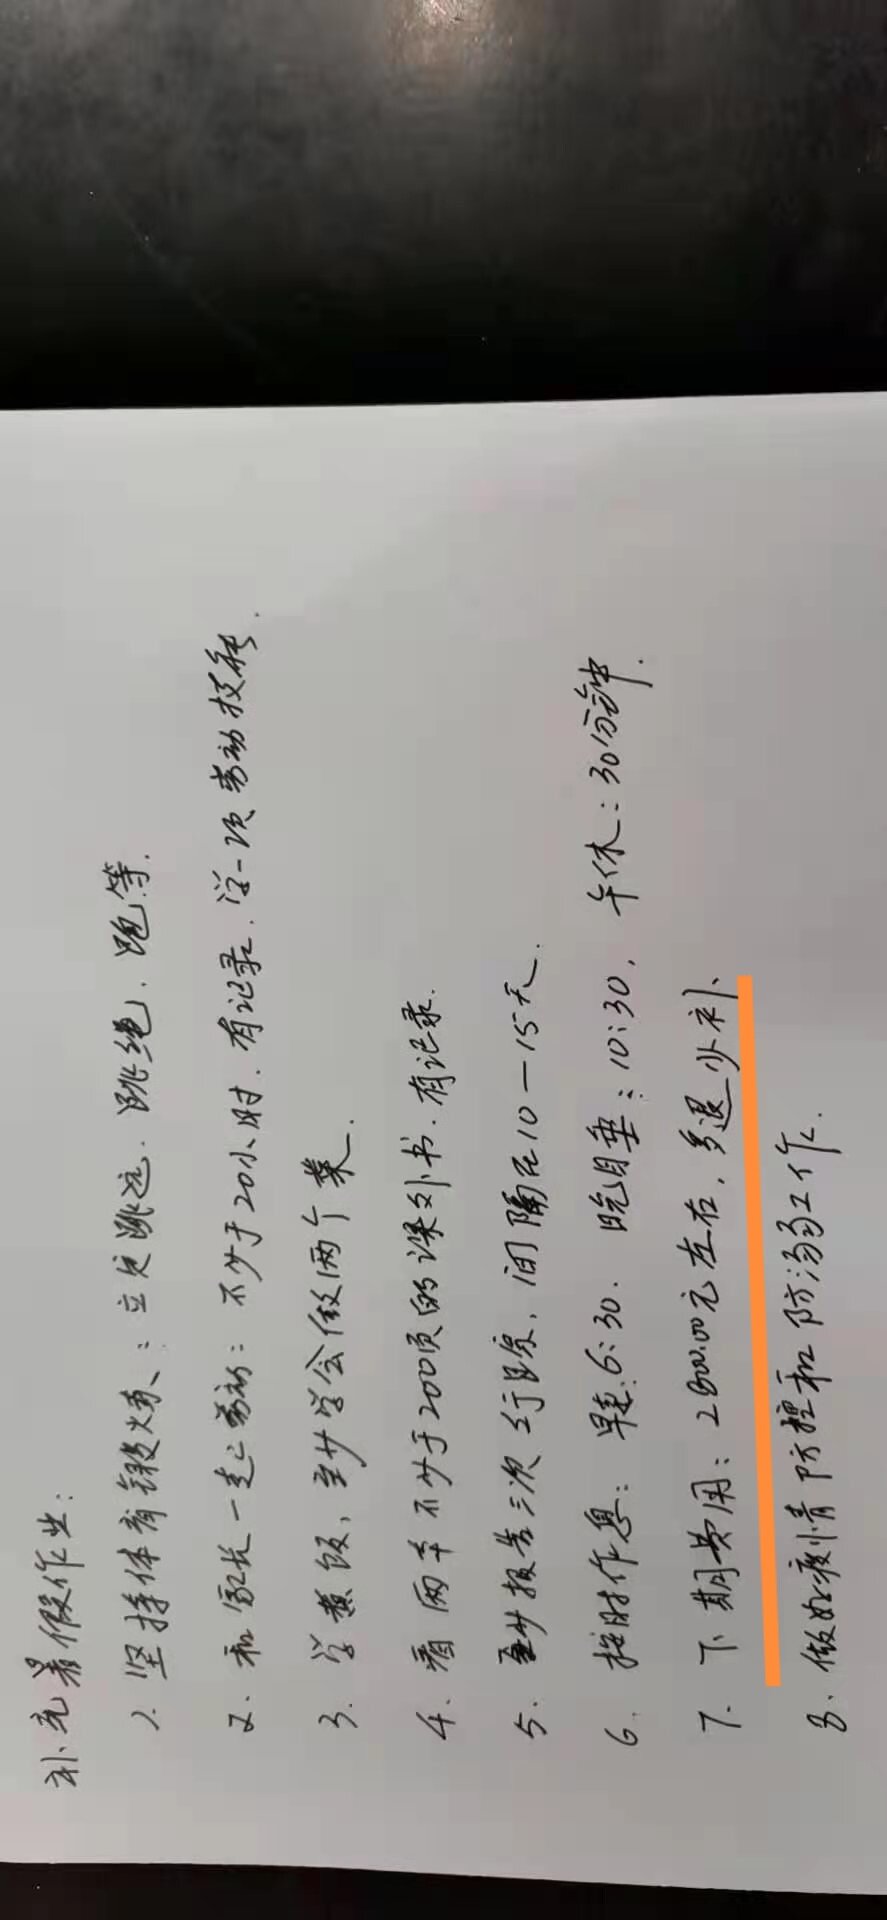 补充暑假作业:
1、坚持体育锻炼、: 立定跳远、跳绳、跑等.
2、和家长一起劳动: 不少于20小时. 有记录. 学一项劳动技能.
3、学煮饭、至少学会做两个菜.
4、看两本不少于200页的课外书. 有记录.
5、至少报告三次行踪、间隔在10—15天.
6、按时作息: 早起:6:30、晚自垂:10:30, 午休:30分钟.
7、下期费用: 2800.00元左右, 多退少补、
8、做好疫情防控和防溺工作.